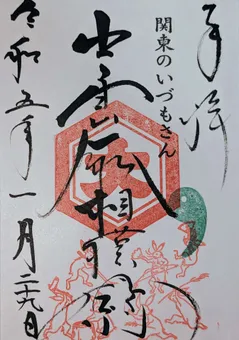 奉拝
関東のいづもさん
出雲大社相模分祠
令和五年一月二十九日